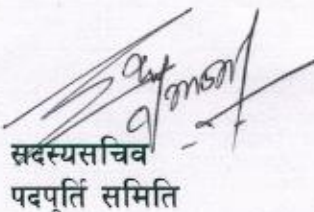 सदस्यसचिव
पदपूर्ति समिति